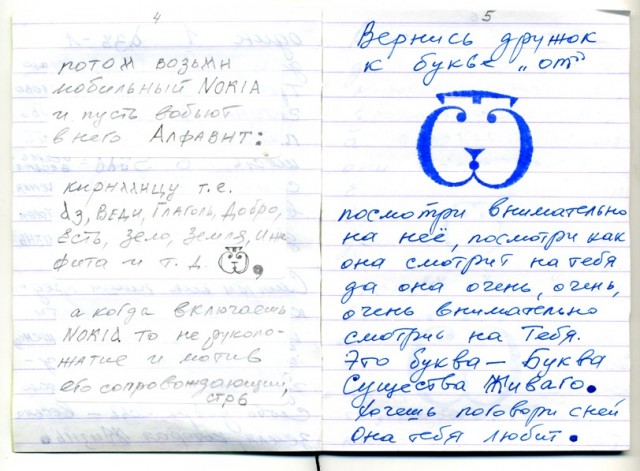 4
потом возьми
мобильный NOKIA
и пусть вобьют
в него АЛФАВИТ:
кириллицу т.е.
Аз, Веди, Глаголь, Добро,
Есть, Зело, Земля, Иже
фита и т.д.
а когда включаешь
NOKIA то не рукопо-
жатие и мотив
его сопровождающий,
стр 6
5
Вернись дружок
к букве „от"
посмотри внимательно
на неё, посмотри как
она смотрит на тебя
да она очень, очень,
очень внимательно
смотрит на Тебя.
Это буква – Буква
Существа Живаго.
Хочешь поговори с ней
Она тебя любит.